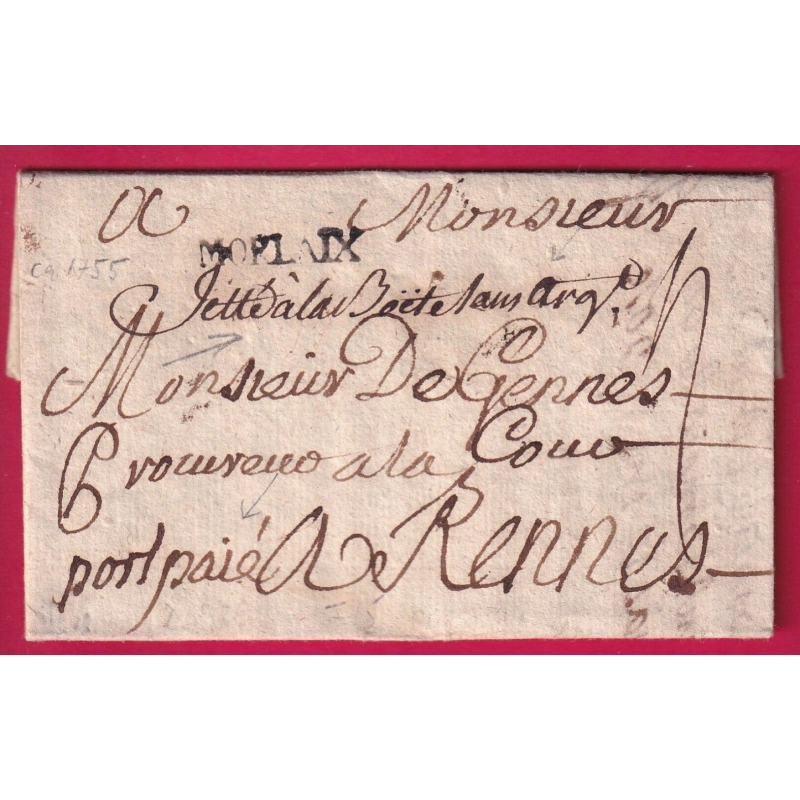 A Monsieur
MORLAIX
ca 1755
Jetté à la Boëte sans Argt.
Monsieur De Gennes
Procureur a la Cour
port paié A Rennes